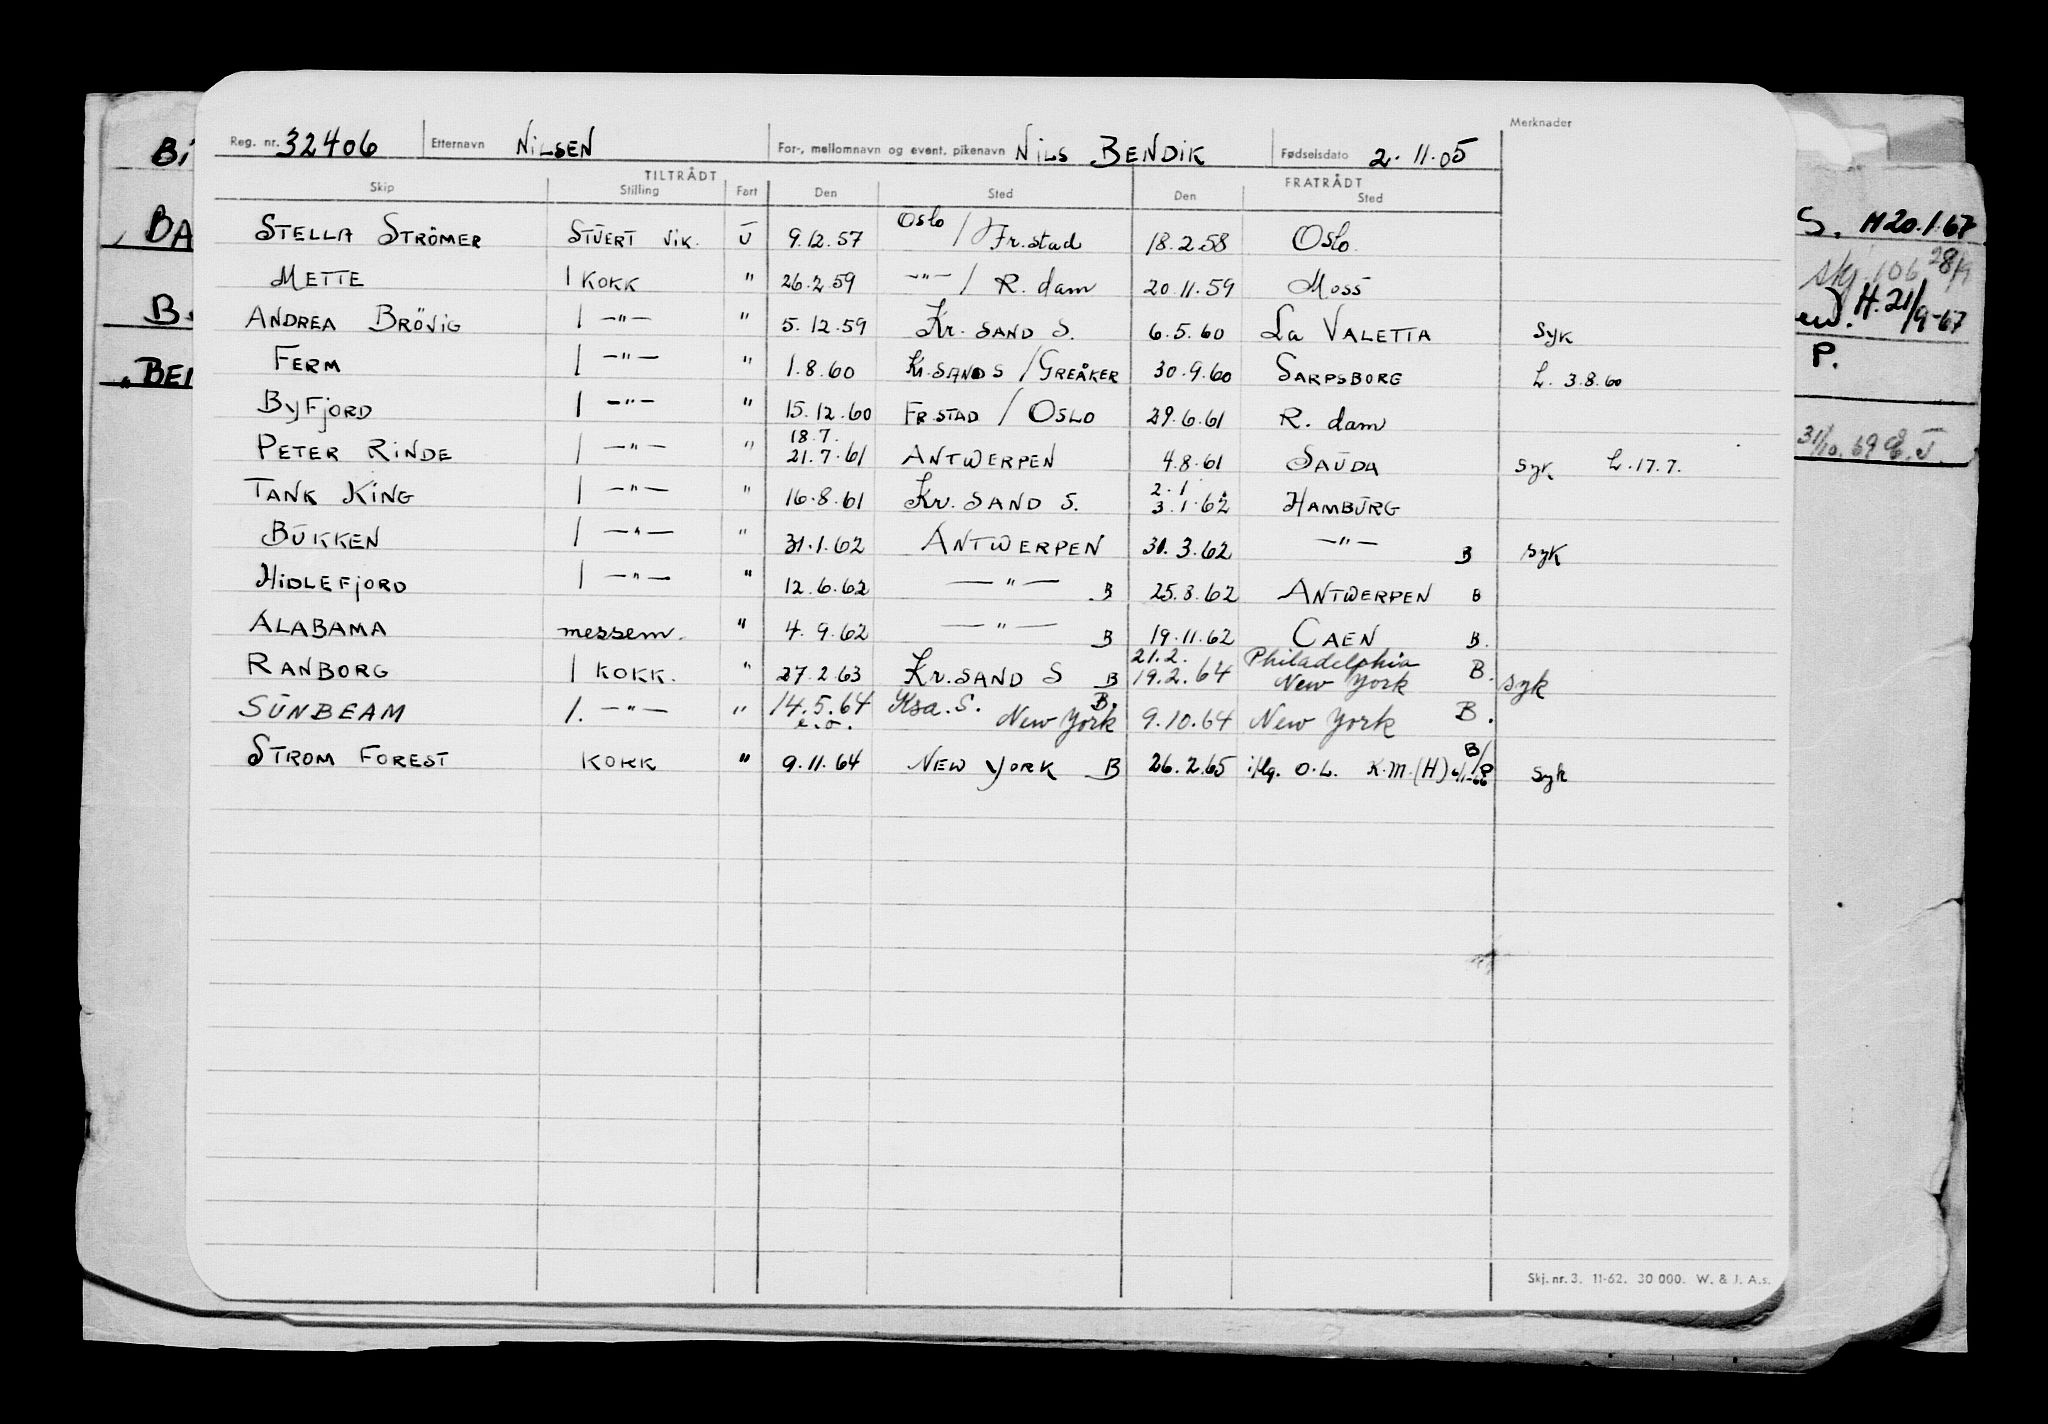 Reg. nr. 32406 Etternavn NILSEN For-, mellomnavn og event. pikenavn NILS BENDIK Fødselsdato 2.11.05 Merknader
TILTRÅDT FRATRÅDT
Skip Stilling Fart Den Sted Den Sted
STELLA STRÖMER STUERT VIK. U 9.12.57 Oslo / Fr.stad 18.2.58 OSLO.
METTE 1 KOKK " 26.2.59 —"— / R. dam 20.11.59 MOSS
ANDREA BRÖVIG 1 —"— " 5.12.59 KR. SAND S. 6.5.60 La VALETTA syk
FERM 1 —"— " 1.8.60 KR. SAND S / GREÅKER 30.9.60 SARPSBORG L. 3.8.60
BYFJORD 1 —"— " 15.12.60 FR.STAD / OSLO 29.6.61 R. dam
PETER RINDE 1 —"— " 18.7. 21.7.61 ANTWERPEN 4.8.61 SAUDA syk L.17.7.
TANK KING 1 —"— " 16.8.61 KR. SAND S. 2.1. 3.1.62 HAMBURG
BUKKEN 1 —"— " 31.1.62 ANTWERPEN 31.3.62 —"— B syk
HIDLEFJORD 1 —"— " 12.6.62 —"— B 25.8.62 ANTWERPEN B
ALABAMA messem. " 4.9.62 —"— B 19.11.62 CAEN B.
RANBORG 1 KOKK. " 27.2.63 KR. SAND S B 21.2. 19.2.64 Philadelphia New York B. syk
SUNBEAM 1. —"— " 14.5.64 e.o. Ksa. S. B. New York 9.10.64 New York B.
STROM FOREST KOKK " 9.11.64 NEW YORK B 26.2.65 iflg. O.L. K.M.(H) B/P syk
Skj. nr. 3. 11-62. 30 000. W. & J. A.s.
BA
S. H 20.1.67
skj. 106 28/9
H. 21/9-67
P.
31/10.69